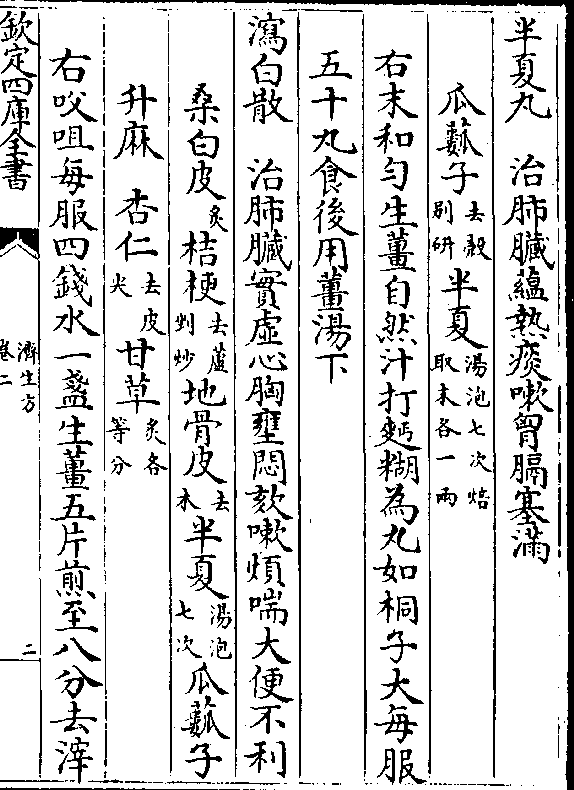 半夏丸　治肺臟藴熱痰嗽胷膈塞滿
瓜蓏子去殼别研半夏湯泡七次焙取末各一兩
右末和勻生薑自然汁打麪糊為丸如桐子大每服
五十丸食後用薑湯下
瀉白散　治肺臟實虛心胸壅悶咳嗽煩喘大便不利
桑白皮炙桔梗去蘆剉炒地骨皮去木半夏湯泡七次瓜蓏子
升麻　杏仁去皮尖甘草炙各等分
右㕮咀每服四錢水一盞生薑五片煎至八分去滓
欽定四庫全書
濟生方
卷二
二